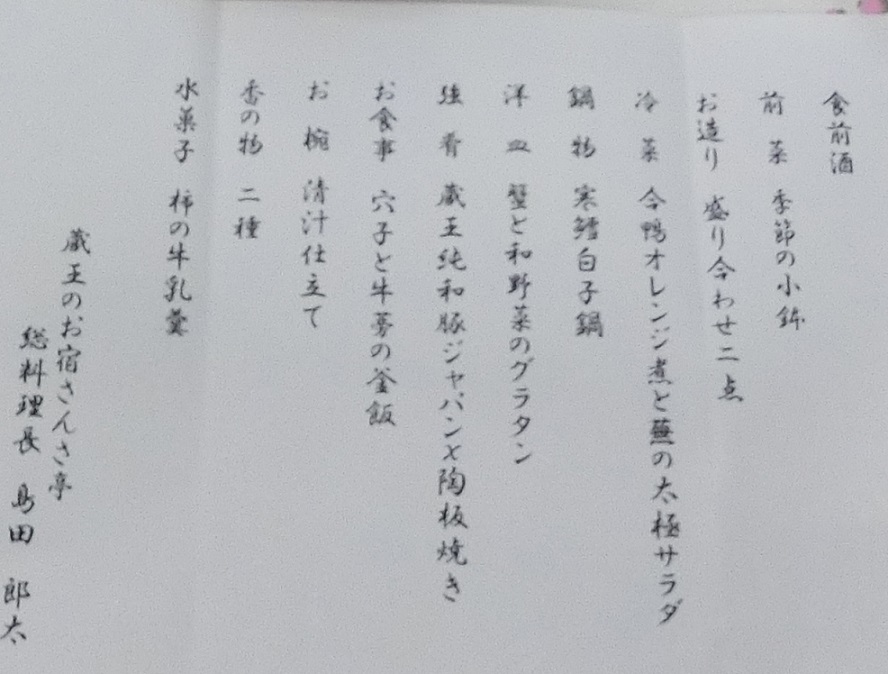 食前酒
前菜 季節の小鉢
お造り 盛り合わせ二点
冷菜 合鴨オレンジ煮と蕪の太極サラダ
鍋物 寒鱈白子鍋
洋皿 蟹と和野菜のグラタン
強肴 蔵王純和豚ジャパンX陶板焼き
お食事 穴子と牛蒡の釜飯
お椀 清汁仕立て
香の物 二種
水菓子 柿の牛乳羹
蔵王のお宿さんさ亭
総料理長 島田 郎太